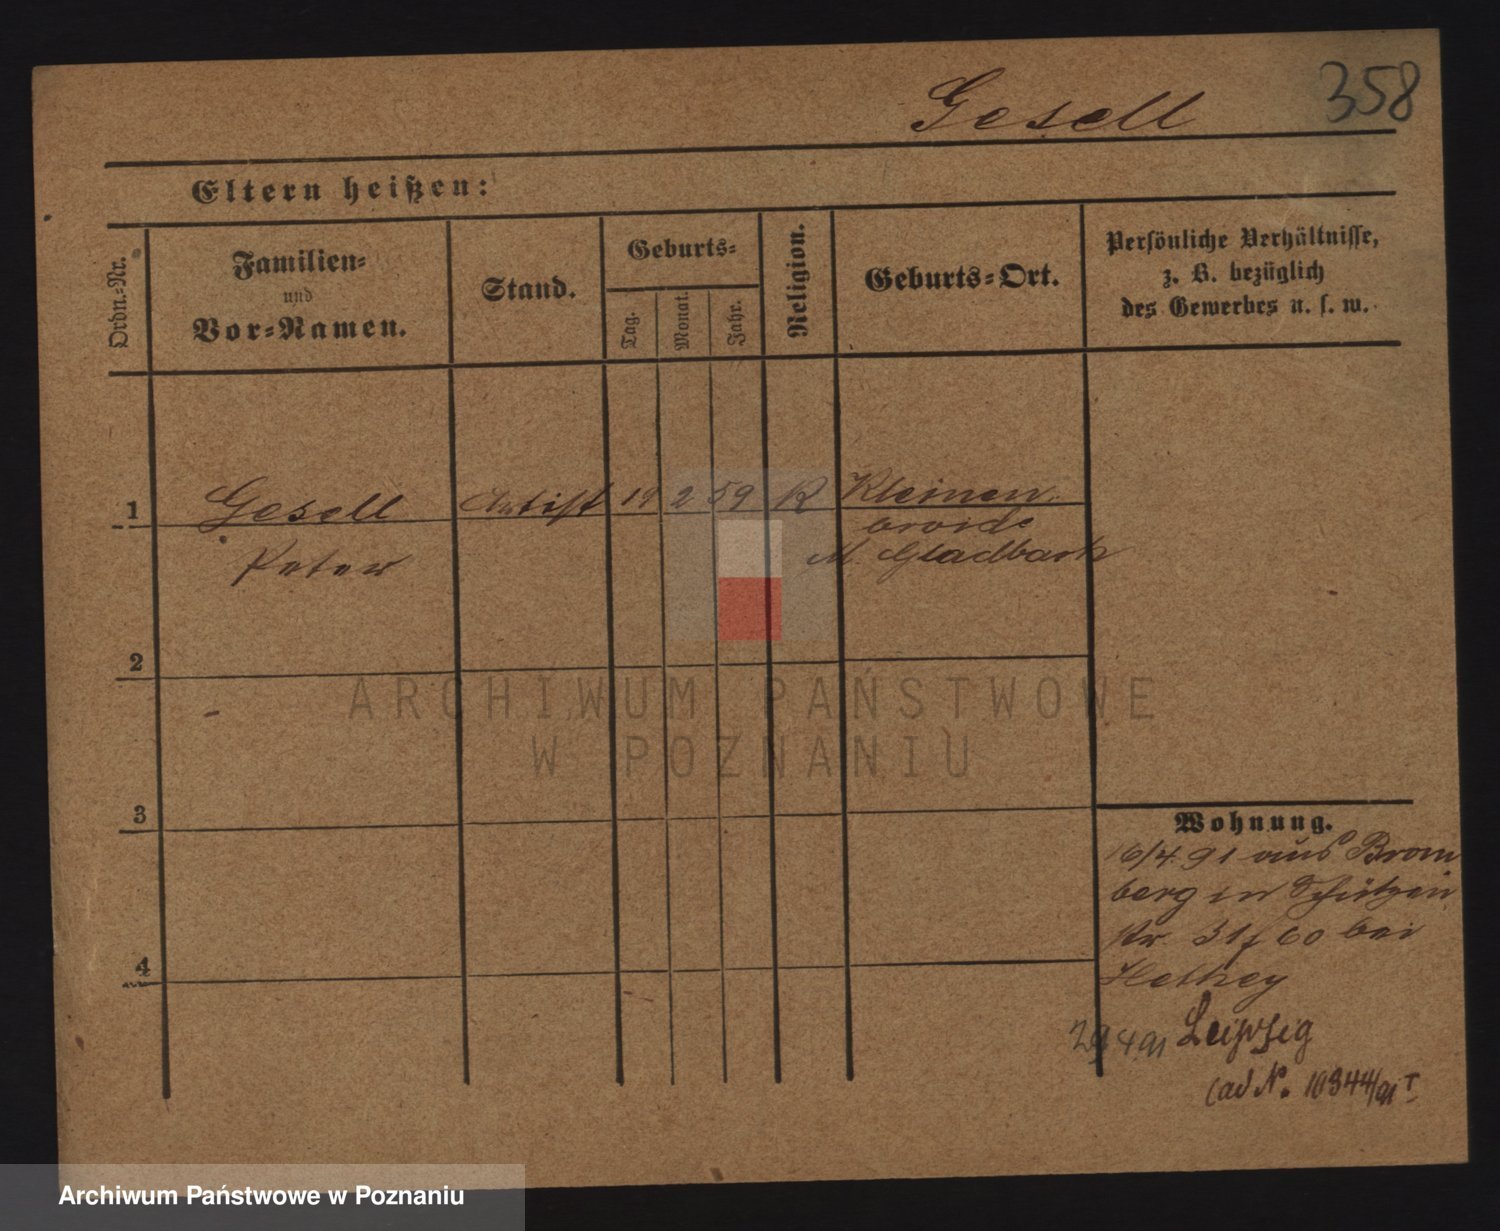 358
Gesell
Eltern heißen:
Ordn.-Nr.
Familien-
und
Vor-Namen.
Stand.
Geburts-
Tag.
Monat.
Jahr.
Religion.
Geburts-Ort.
Persönliche Verhältnisse,
z. B. bezüglich
des Gewerbes u. s. w.
1
Gesell
Peter
Artist
19
2
59
K
Kleinen
broich
M. Gladbach
2
3
4
Wohnung.
16/4 91 aus Brom
berg in Schützen
str 31 bei
29 4 91 Leipzig
cad No. 10344/91 I
ARCHIWUM PAŃSTWOWE
W POZNANIU
Archiwum Państwowe w Poznaniu